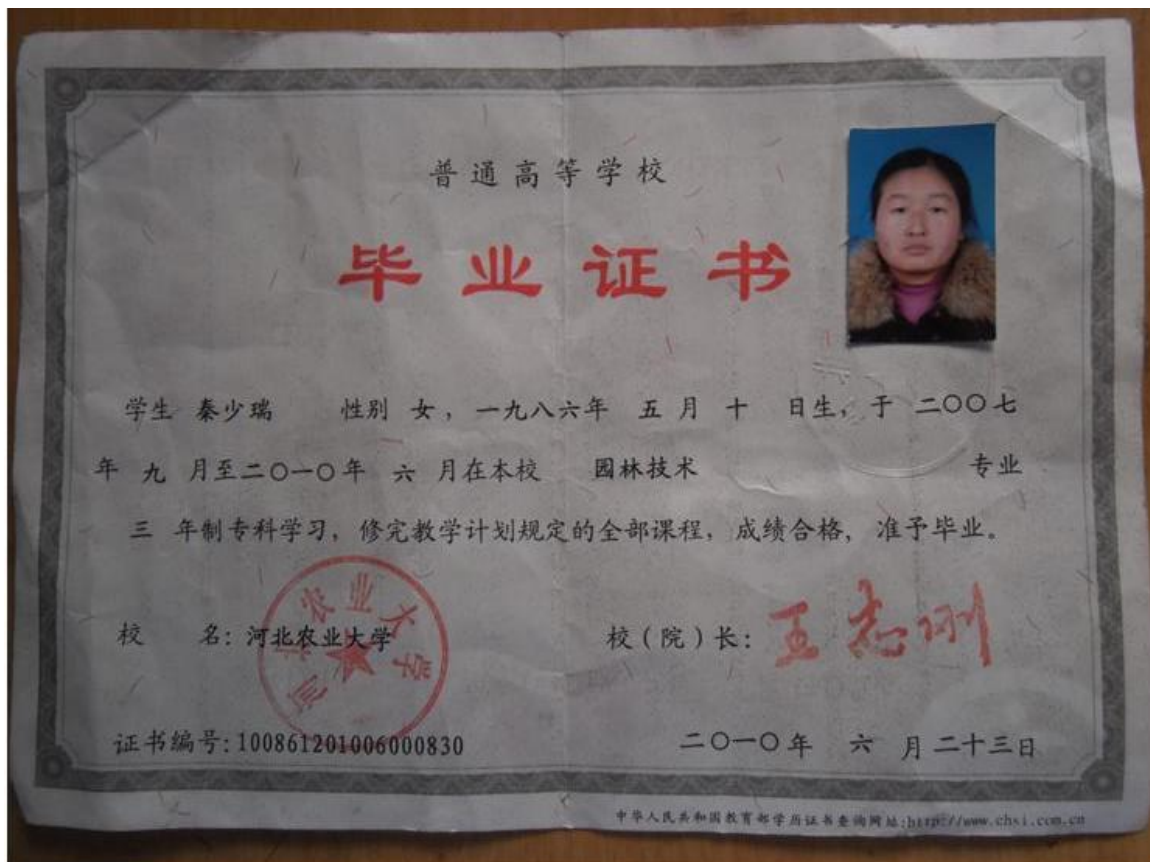 普通高等学校
毕业证书
学生 秦少瑞 性别 女，一九八六年 五 月 十 日生，于 二〇〇七
年 九 月至二〇一〇年 六 月在本校 园林技术 专业
三 年制专科学习，修完教学计划规定的全部课程，成绩合格，准予毕业。
校 名：河北农业大学 校（院）长：王志刚
河北农业大学
证书编号：100861201006000830 二〇一〇年 六 月二十三日
中华人民共和国教育部学历证书查询网址:http://www.chsi.com.cn